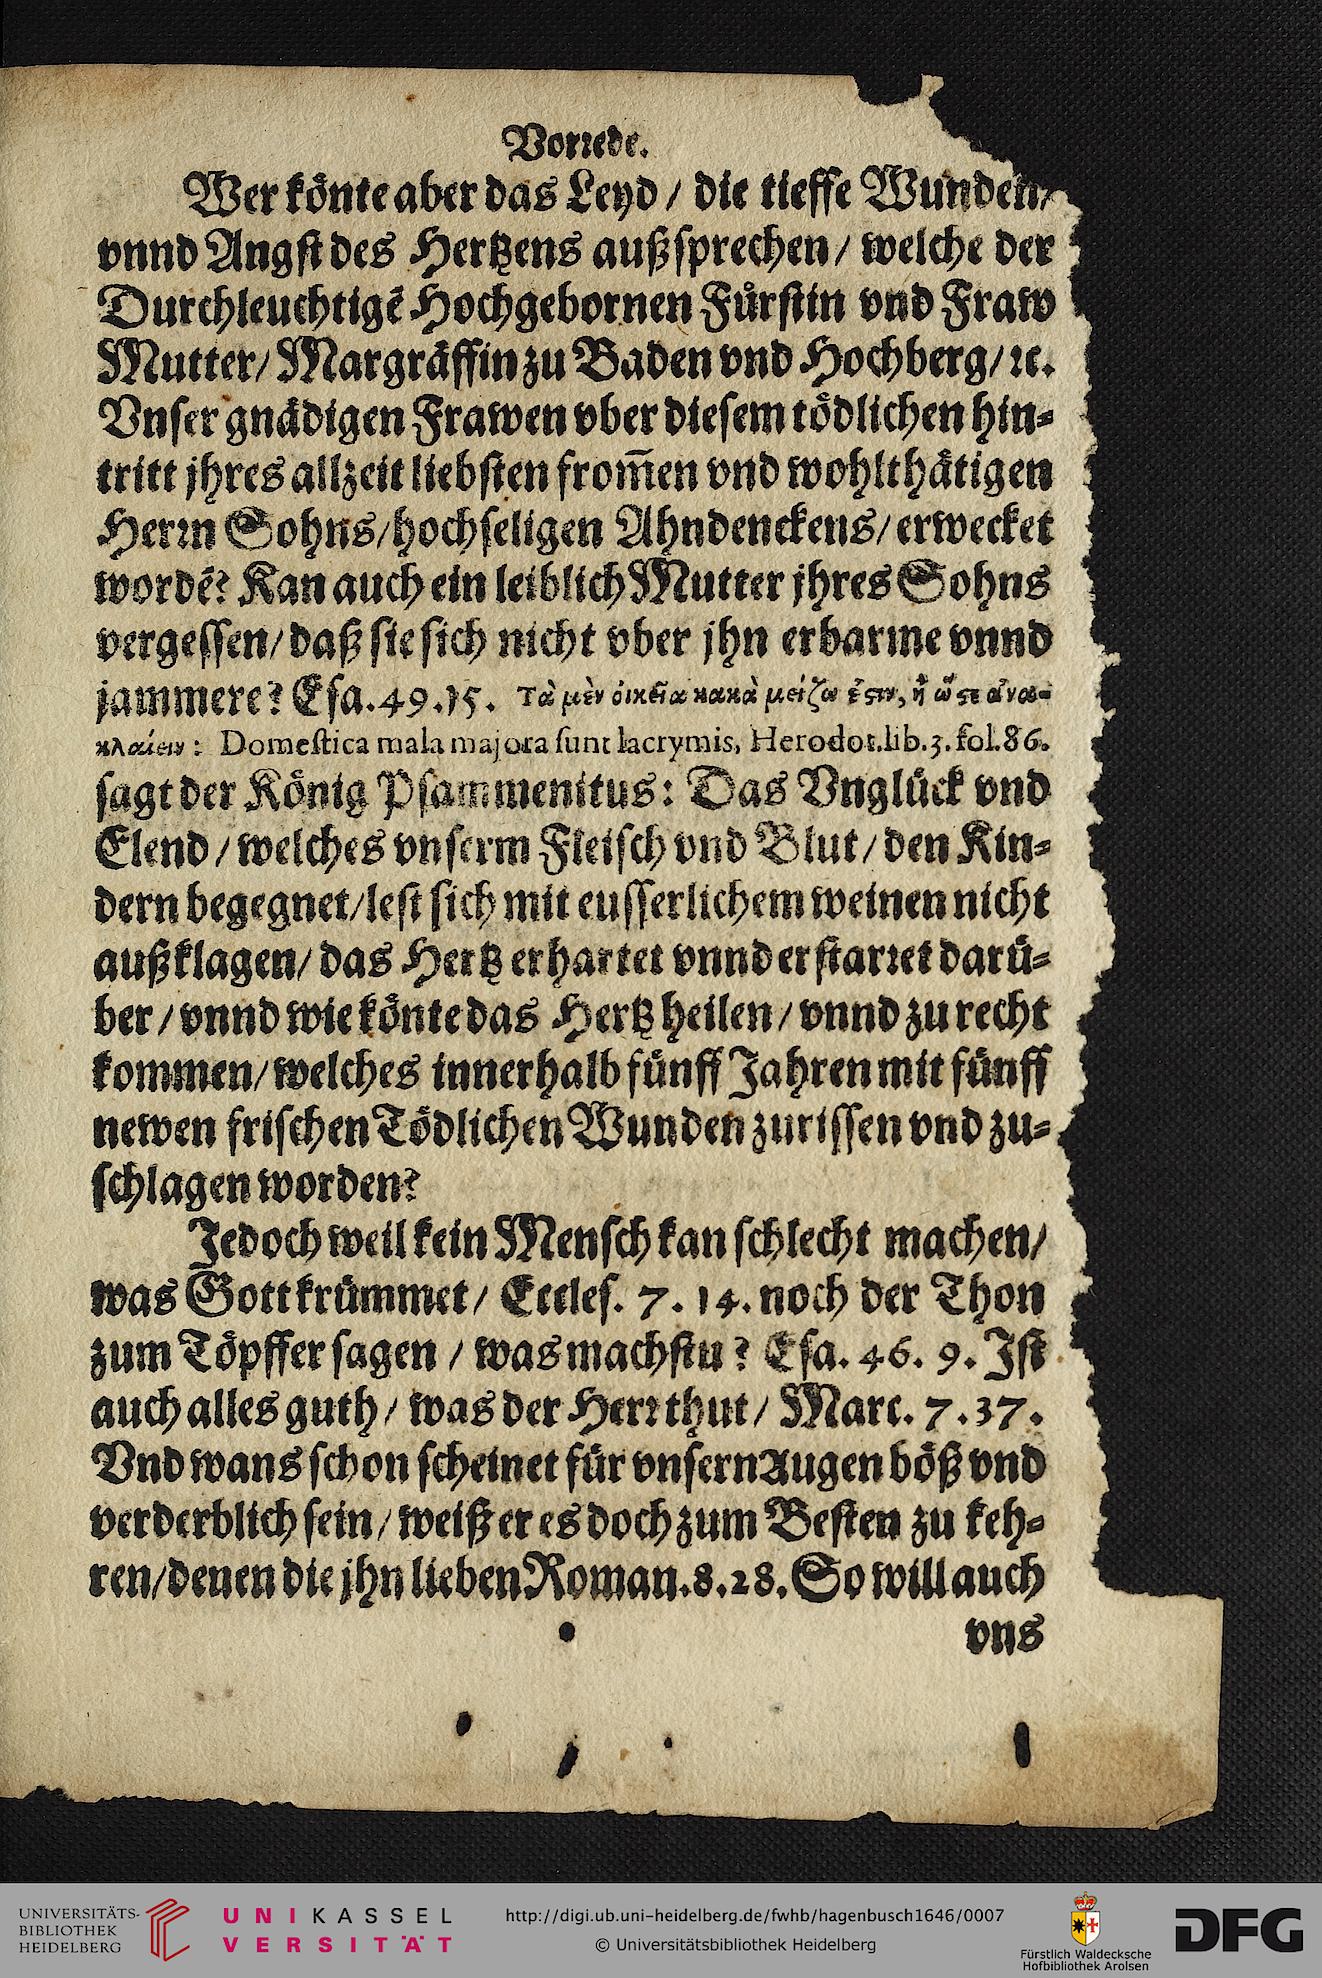 Vorꝛede.
Wer könte aber das Leyd / die tieffe Wunden/
vnnd Angst des Hertzens außsprechen / welche der
Durchleuchtigē Hochgebornen Fürstin vnd Fraw
Mutter/ Margräffin zu Baden vnd Hochberg/ ꝛc.
Vnser gnädigen Frawen vber diesem tödlichen hin-
tritt jhres allzeit liebsten from̄en vnd wohlthätigen
Herꝛn Sohns/ hochseligen Ahndenckens/ erwecket
wordē? Kan auch ein leiblich Mutter jhres Sohns
vergessen/ daß sie sich nicht vber jhn erbarme vnnd
jammere? Esa. 49. 15. Τὰ μὲν οἰκεῖα κακὰ μείζω ἔςιν, ἢ ὥςε ἀνα-
κλαίειν: Domestica mala majora sunt lacrymis, Herodot. lib. 3. fol. 86.
sagt der König Psammenitus: Das Vnglück vnd
Elend / welches vnserm Fleisch vnd Blut / den Kin-
dern begegnet/ lest sich mit eusserlichem weinen nicht
außklagen/ das Hertz erhartet vnnd erstarꝛet darü-
ber / vnnd wie könte das Hertz heilen / vnnd zu recht
kommen/ welches innerhalb fünff Jahren mit fünff
newen frischen Tödlichen Wunden zurissen vnd zu-
schlagen worden?
Jedoch weil kein Mensch kan schlecht machen/
was Gott krümmet / Eccles. 7. 14. noch der Thon
zum Töpffer sagen / was machstu? Esa. 46. 9. Ist
auch alles guth / was der Herꝛ thut / Marc. 7. 37.
Vnd wans schon scheinet für vnsern Augen böß vnd
verderblich sein / weiß er es doch zum Besten zu keh-
ren/ denen die jhn lieben Roman. 8. 28. So will auch
vns
UNIVERSITÄTS-
BIBLIOTHEK
HEIDELBERG
UNIKASSEL
VERSITÄT
http://digi.ub.uni-heidelberg.de/fwhb/hagenbusch1646/0007
© Universitätsbibliothek Heidelberg
Fürstlich Waldecksche
Hofbibliothek Arolsen
DFG